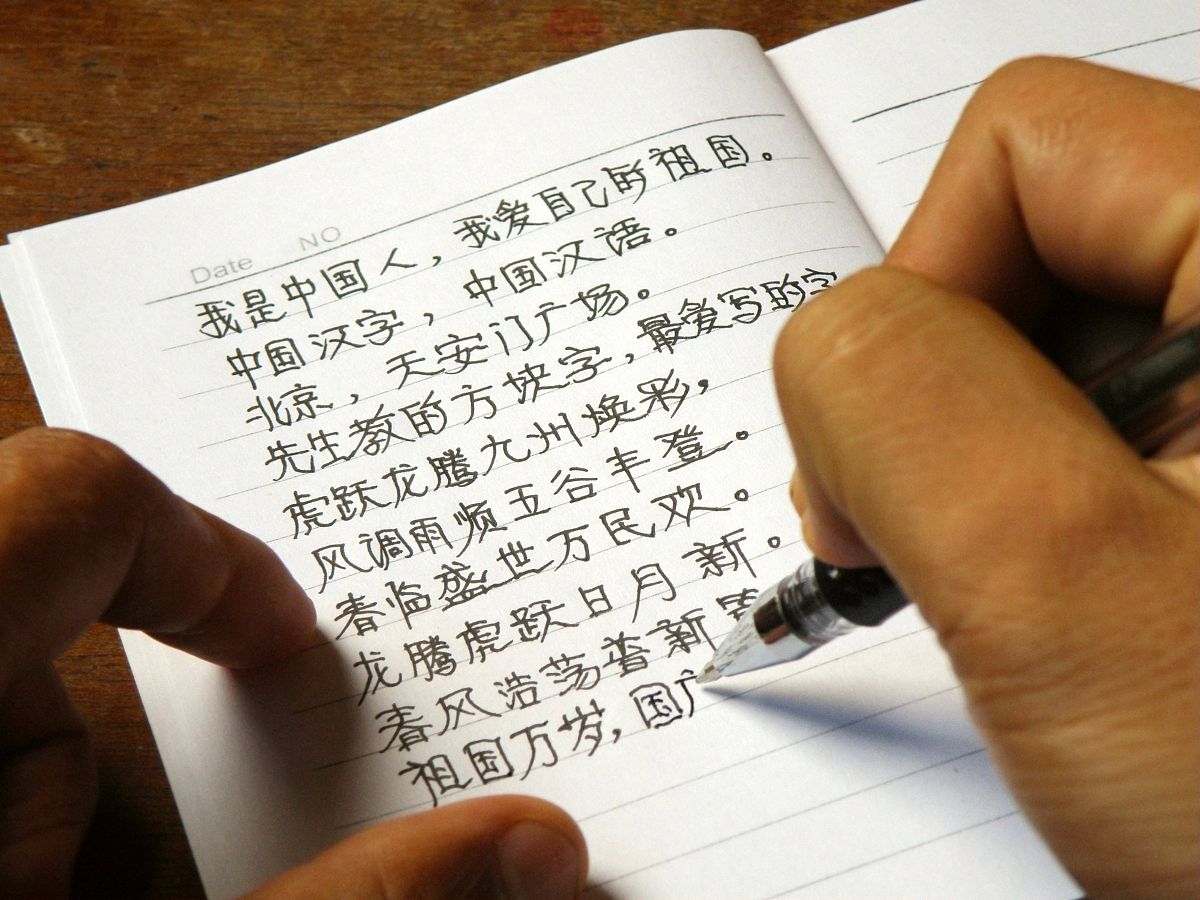 Date NO
我是中国人，我爱自己的祖国。
中国汉字，中国汉语。
北京，天安门广场。
先生教的方块字，最爱写的字
虎跃龙腾九州焕彩，
风调雨顺五谷丰登。
春临盛世万民欢。
龙腾虎跃日月新。
春风浩荡普新
祖国万岁，国